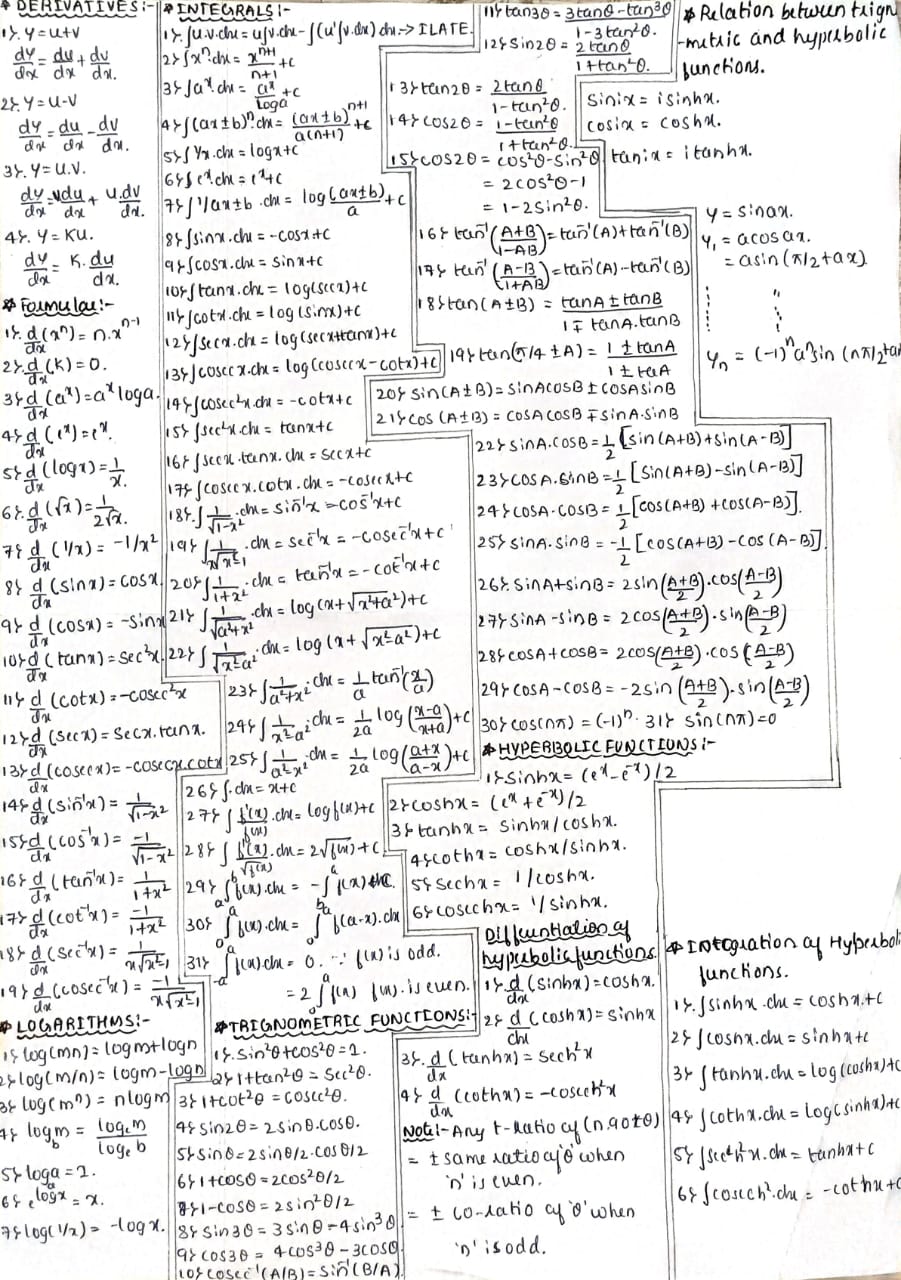 * DERIVATIVES :-
1}. y = u+v
dy/dx = du/dx + dv/dx.
2}. y = u-v
dy/dx = du/dx - dv/dx.
3}. y = u.v.
dy/dx = vdu/dx + u.dv/dx.
4}. y = Ku.
dy/dx = K.du/dx.
* Formulae:-
1}. d/dx (xⁿ) = n.xⁿ⁻¹
2}. d/dx (K) = 0.
3} d/dx (aˣ) = aˣ loga.
4} d/dx (eˣ) = eˣ.
5} d/dx (logx) = 1/x.
6}. d/dx (√x) = 1/2√x.
7} d/dx (1/x) = -1/x²
8} d/dx (sinx) = cosx.
9} d/dx (cosx) = -sinx
10} d/dx (tanx) = sec²x.
11} d/dx (cotx) = -cosec²x
12} d/dx (secx) = secx.tanx.
13} d/dx (cosecx) = -cosecx.cotx
14} d/dx (sin⁻¹x) = 1/√1-x²
15} d/dx (cos⁻¹x) = -1/√1-x²
16} d/dx (tan⁻¹x) = 1/1+x²
17} d/dx (cot⁻¹x) = -1/1+x²
18} d/dx (sec⁻¹x) = 1/x√x²-1
19} d/dx (cosec⁻¹x) = -1/x√x²-1
* LOGARITHMS:-
1} log(mn) = logm+logn
2} log(m/n) = logm-logn
3} log(mⁿ) = nlogm
4} log_b m = log_e m/log_e b
5} log_a a = 1.
6} e^logx = x.
7} log(1/x) = -logx.
* INTEGRALS :-
1}. ∫u.v.dx = u∫v.dx - ∫(u'∫v.dx) dx → ILATE.
2} ∫xⁿ.dx = xⁿ⁺¹/n+1 +c
3} ∫aˣ.dx = aˣ/loga +c
4} ∫(ax±b)ⁿ.dx = (ax±b)ⁿ⁺¹/a(n+1) +c
5} ∫1/x.dx = logx+c
6} ∫eˣ.dx = eˣ+c
7} ∫1/ax±b .dx = log(ax±b)/a +c
8} ∫sinx.dx = -cosx+c
9} ∫cosx.dx = sinx+c
10} ∫tanx.dx = log(secx)+c
11} ∫cotx.dx = log(sinx)+c
12} ∫secx.dx = log(secx+tanx)+c
13} ∫cosecx.dx = log(cosecx-cotx)+c
14} ∫cosec²x.dx = -cotx+c
15} ∫sec²x.dx = tanx+c
16} ∫secx.tanx.dx = secx+c
17} ∫cosecx.cotx.dx = -cosecx+c
18}. ∫1/√1-x² .dx = sin⁻¹x = -cos⁻¹x+c
19} ∫1/x√x²-1 .dx = sec⁻¹x = -cosec⁻¹x+c
20} ∫1/1+x² .dx = tan⁻¹x = -cot⁻¹x+c
21} ∫1/√a²+x² .dx = log(x+√x²+a²)+c
22} ∫1/√x²-a² .dx = log(x+√x²-a²)+c
23} ∫1/a²+x² .dx = 1/a tan⁻¹(x/a)
24} ∫1/x²-a² .dx = 1/2a log(x-a/x+a)+c
25} ∫1/a²-x² .dx = 1/2a log(a+x/a-x)+c
26} ∫.dx = x+c
27} ∫f'(x)/f(x) .dx = logf(x)+c
28} ∫f'(x)/√f(x) .dx = 2√f(x)+c
29} ₐ∫ᵇ f(x).dx = -_b∫ᵃ f(x).dx.
30} ₀∫ᵃ f(x).dx = ₀∫ᵃ f(a-x).dx
31} ₋ₐ∫ᵃ f(x).dx = 0. ∵ f(x) is odd.
= 2 ₀∫ᵃ f(x) f(x).is even.
* TRIGNOMETRIC FUNCTIONS:-
1}. sin²θ+cos²θ=1.
2} 1+tan²θ = sec²θ.
3} 1+cot²θ = cosec²θ.
4} sin2θ = 2sinθ.cosθ.
5} sinθ = 2sinθ/2.cosθ/2
6} 1+cosθ = 2cos²θ/2
7} 1-cosθ = 2sin²θ/2
8} sin3θ = 3sinθ-4sin³θ
9} cos3θ = 4cos³θ-3cosθ
10} cosec⁻¹(A/B) = sin⁻¹(B/A)
11} tan3θ = 3tanθ-tan3θ/1-3tan²θ.
12} sin2θ = 2tanθ/1+tan²θ.
13} tan2θ = 2tanθ/1-tan²θ.
14} cos2θ = 1-tan²θ/1+tan²θ.
15} cos2θ = cos²θ-sin²θ
= 2cos²θ-1
= 1-2sin²θ.
16} tan⁻¹(A+B/1-AB) = tan⁻¹(A)+tan⁻¹(B)
17} tan⁻¹(A-B/1+AB) = tan⁻¹(A)-tan⁻¹(B)
18} tan(A±B) = tanA±tanB/1∓tanA.tanB
19} tan(π/4±A) = 1±tanA/1±taA
20} sin(A±B) = sinAcosB±cosAsinB
21} cos(A±B) = cosAcosB∓sinA.sinB
22} sinA.cosB = 1/2 [sin(A+B)+sin(A-B)]
23} cosA.sinB = 1/2 [sin(A+B)-sin(A-B)]
24} cosA.cosB = 1/2 [cos(A+B)+cos(A-B)].
25} sinA.sinB = -1/2 [cos(A+B)-cos(A-B)]
26} sinA+sinB = 2sin(A+B/2).cos(A-B/2)
27} sinA-sinB = 2cos(A+B/2).sin(A-B/2)
28} cosA+cosB = 2cos(A+B/2).cos(A-B/2)
29} cosA-cosB = -2sin(A+B/2).sin(A-B/2)
30} cos(nπ) = (-1)ⁿ. 31} sin(nπ)=0
* HYPERBOLIC FUNCTIONS:-
1} sinhx = (eˣ-e⁻ˣ)/2
2} coshx = (eˣ+e⁻ˣ)/2
3} tanhx = sinhx/coshx.
4} cothx = coshx/sinhx.
5} sechx = 1/coshx.
6} cosechx = 1/sinhx.
Differentiation of
hyperbolic functions.
1}. d/dx (sinhx) = coshx.
2} d/dx (coshx) = sinhx
3}. d/dx (tanhx) = sech²x
4} d/dx (cothx) = -cosech²x
Note:- Any t-Ratio of (n.90±θ)
= ± same ratio of 'θ' when
'n' is even.
= ± co-ratio of 'θ' when
'n' is odd.
* Relation between trign
-metric and hyperbolic
functions.
sinix = isinhx.
cosix = coshx.
tanix = itanhx.
y = sinax.
y₁ = acosax.
= asin(π/2+ax)
"
yₙ = (-1)ⁿaⁿsin(nπ/2+ax
* Integration of Hyperboli
functions.
1}. ∫sinhx.dx = coshx+c
2} ∫coshx.dx = sinhx+c
3} ∫tanhx.dx = log(coshx)+c
4} ∫cothx.dx = log(sinhx)+c
5} ∫sec²h x.dx = tanhx+c
6} ∫cosech².dx = -cothx+c